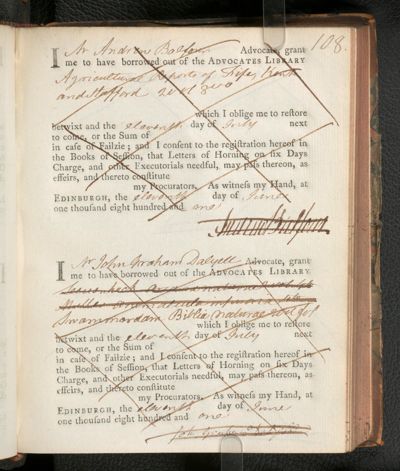 108.
I Mr Andrew Balfour Advocate, grant
me to have borrowed out of the ADVOCATES LIBRARY
Agricultural Reports of Fife, Kent
and Stafford 2 vol 8vo
which I oblige me to reſtore
betwixt and the eleventh day of July next
to come, or the Sum of
in caſe of Failzie; and I conſent to the regiſtration hereof in
the Books of Seſſion, that Letters of Horning on ſix Days
Charge, and other Executorials needful, may paſs thereon, as
effeirs, and thereto conſtitute
my Procurators. As witneſs my Hand, at
EDINBURGH, the eleventh day of June
one thouſand eight hundred and one
Andrew Balfour
I Mr John Graham Dalyell Advocate, grant
me to have borrowed out of the ADVOCATES LIBRARY
Leeuwenhoek
Muller animalcula infusoria
Swammerdam Biblia naturae
which I oblige me to reſtore
betwixt and the eleventh day of July next
to come, or the Sum of
in caſe of Failzie; and I conſent to the regiſtration hereof in
the Books of Seſſion, that Letters of Horning on ſix Days
Charge, and other Executorials needful, may paſs thereon, as
effeirs, and thereto conſtitute
my Procurators. As witneſs my Hand, at
EDINBURGH, the eleventh day of June
one thouſand eight hundred and one
John Graham Dalyell